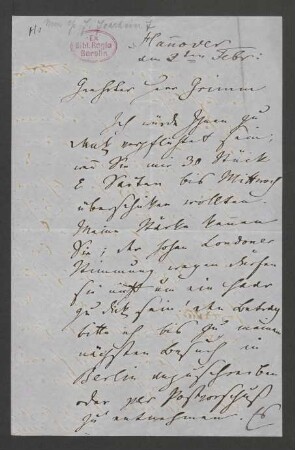 Ex
Bibl. Regia
Berolin.
Hannover
den 2ten Febr:
Geehrter Herr Grimm
Ich würde Ihnen zu
Dank verpflichtet sein,
wenn Sie mir 30 Stück
E Saiten bis Mittwoch
überschicken wollten.
Meine Stärke kennen
Sie; der hohen Londoner
Stimmung wegen dürfen
sie nicht um ein Haar
zu dick sein! Den Betrag
bitte ich bis zu meinem
nächsten Besuch in
Berlin anzuschreiben
oder per Postvorschuß
zu entnehmen.